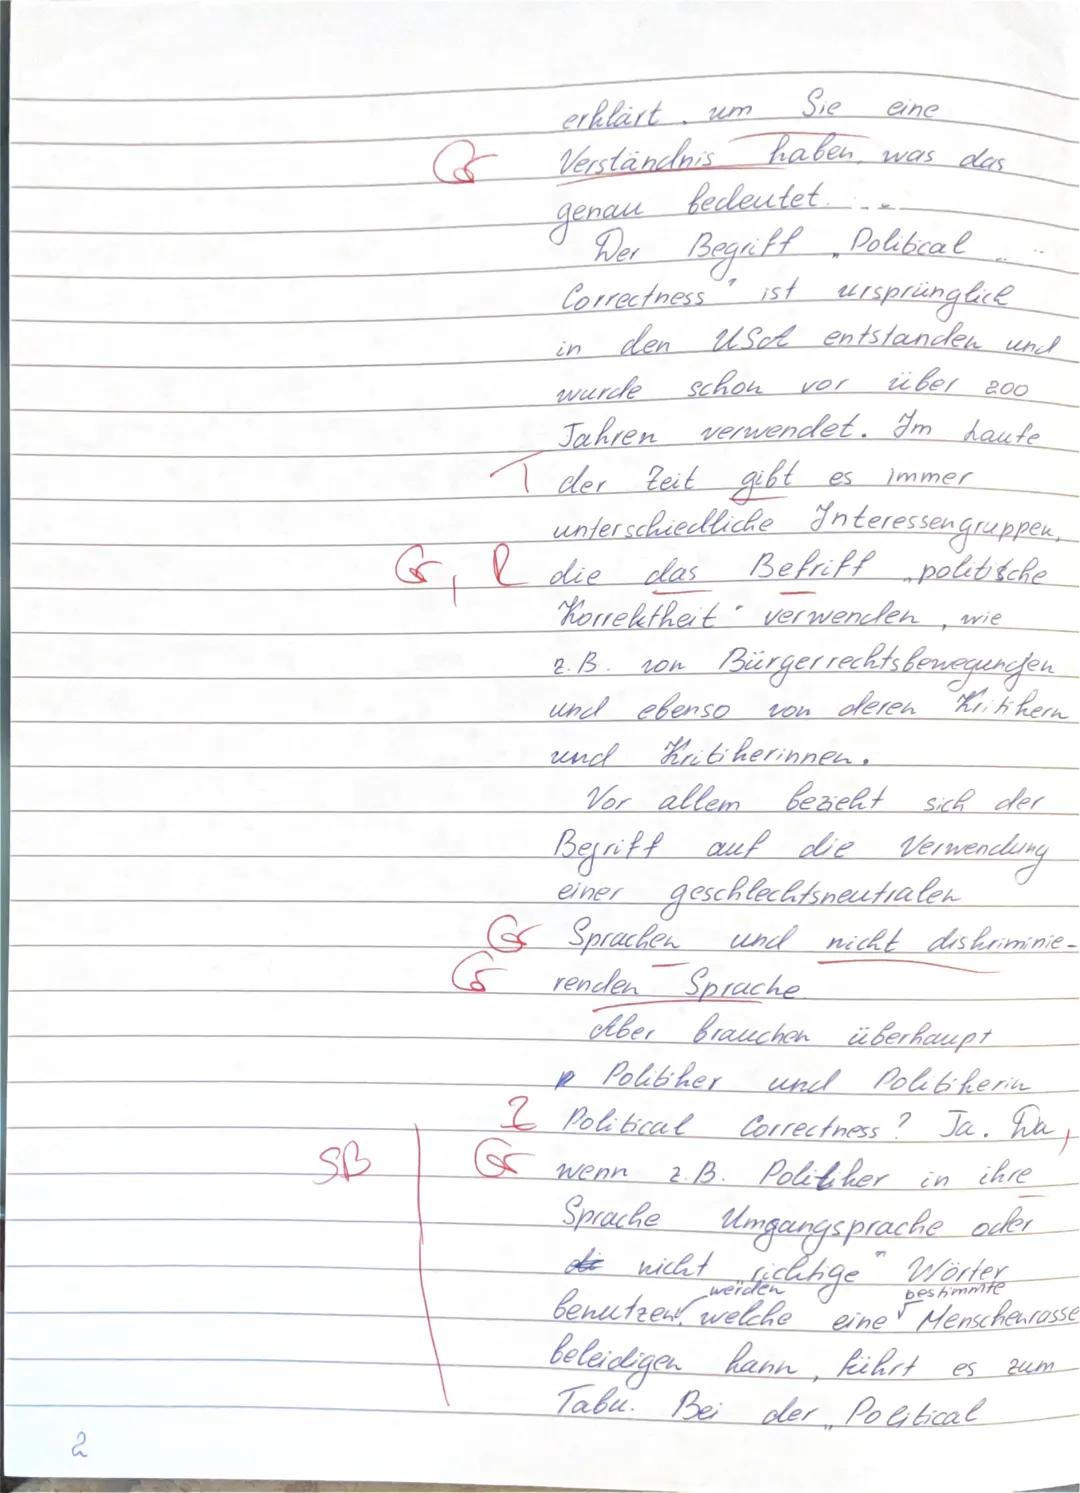 erklärt, um Sie eine
Gr Verständnis haben, was das
genau bedeutet.
Der Begriff „Political
Correctness" ist ursprünglich
in den USA entstanden und
wurde schon vor über 200
Jahren verwendet. Im Laufe
T der Zeit gibt es immer
unterschiedliche Interessengruppen,
Gr, R die das Befriff „politische
Korrektheit" verwenden, wie
z.B. von Bürgerrechtsbewegungen
und ebenso von deren Kritikern
und Kritikerinnen.
Vor allem bezieht sich der
Begriff auf die Verwendung
einer geschlechtsneutralen
Gr Sprachen und nicht diskriminie-
Gr renden Sprache.
Aber brauchen überhaupt
Politiker und Politikerin
Z Political Correctness? Ja. Da,
SB Gr wenn z.B. Politiker in ihre
Sprache Umgangsprache oder
nicht „richtige" Wörter
werden bestimmte
benutzen, welche eine Menschenrasse
beleidigen kann, führt es zum
Tabu. Bei der „Political
2